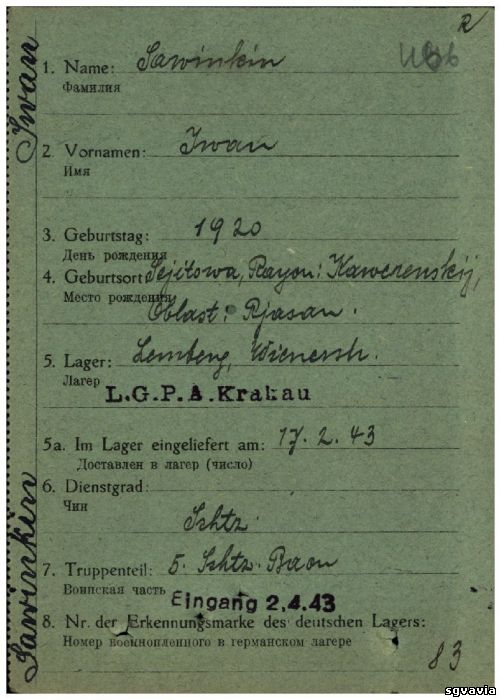 R
1. Name: Sawinkin
Фамилия
2. Vornamen: Iwan
Имя
3. Geburtstag: 1920
День рождения
4. Geburtsort Sejitowa, Rayon: Kawerenskij,
Место рождения Oblast: Rjasan.
5. Lager: Lemberg, Wienerstr.
Лагер
L.G.P.A. Krakau
5a. Im Lager eingeliefert am: 17.2.43
Доставлен в лагер (число)
6. Dienstgrad:
Чин
Schtz.
7. Truppenteil: 5. Schtz. Baon
Воинская часть
Eingang 2.4.43
8. Nr. der Erkennungsmarke des deutschen Lagers:
Номер военнопленного в германском лагере
83
Sawinkin Iwan
sgvavia